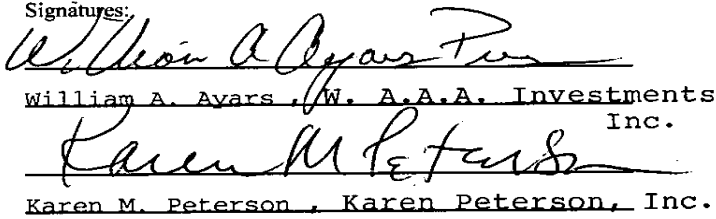 Signatures:
William A Ayars Pres
William A. Ayars , W. A.A.A. Investments
Inc.
Karen M Peterson
Karen M. Peterson , Karen Peterson, Inc.